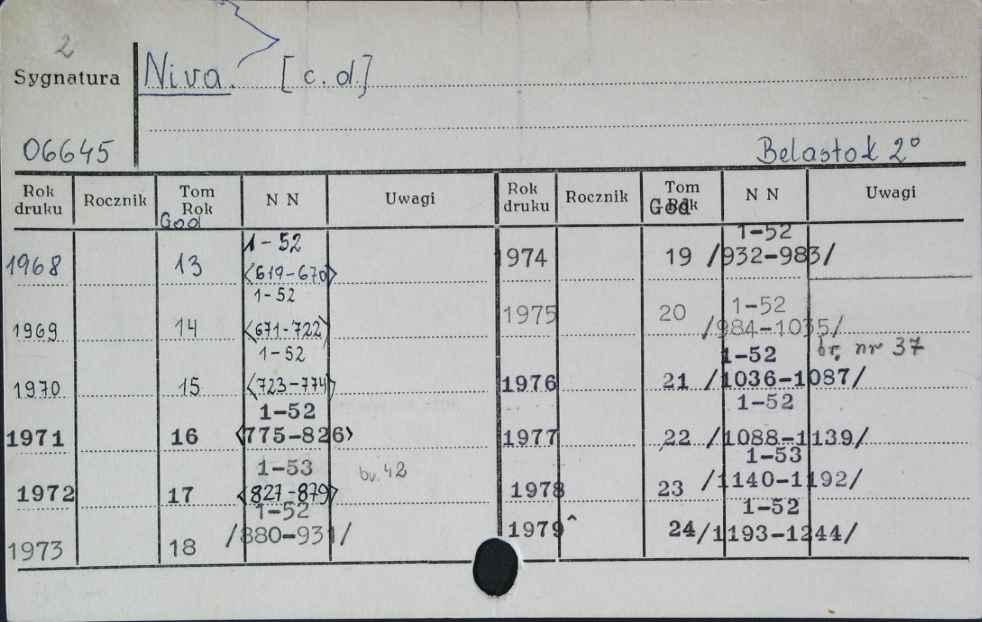 2
Sygnatura Niva. [c.d.]
06645 Belastok 2°
Rok druku Rocznik Tom Rok God N N Uwagi Rok druku Rocznik Tom Rok God N N Uwagi
1968 13 1-52 <619-670>
1969 14 1-52 <671-722>
1970 15 1-52 <723-774>
1971 16 1-52 <775-826>
1972 17 1-53 <827-879> br. 42
1973 18 1-52 /880-931/
1974 19 1-52 /932-983/
1975 20 1-52 /984-1035/
1976 21 1-52 /1036-1087/ br. nr 37
1977 22 1-52 /1088-1139/
1978 23 1-53 /1140-1192/
1979^ 24 1-52 /1193-1244/